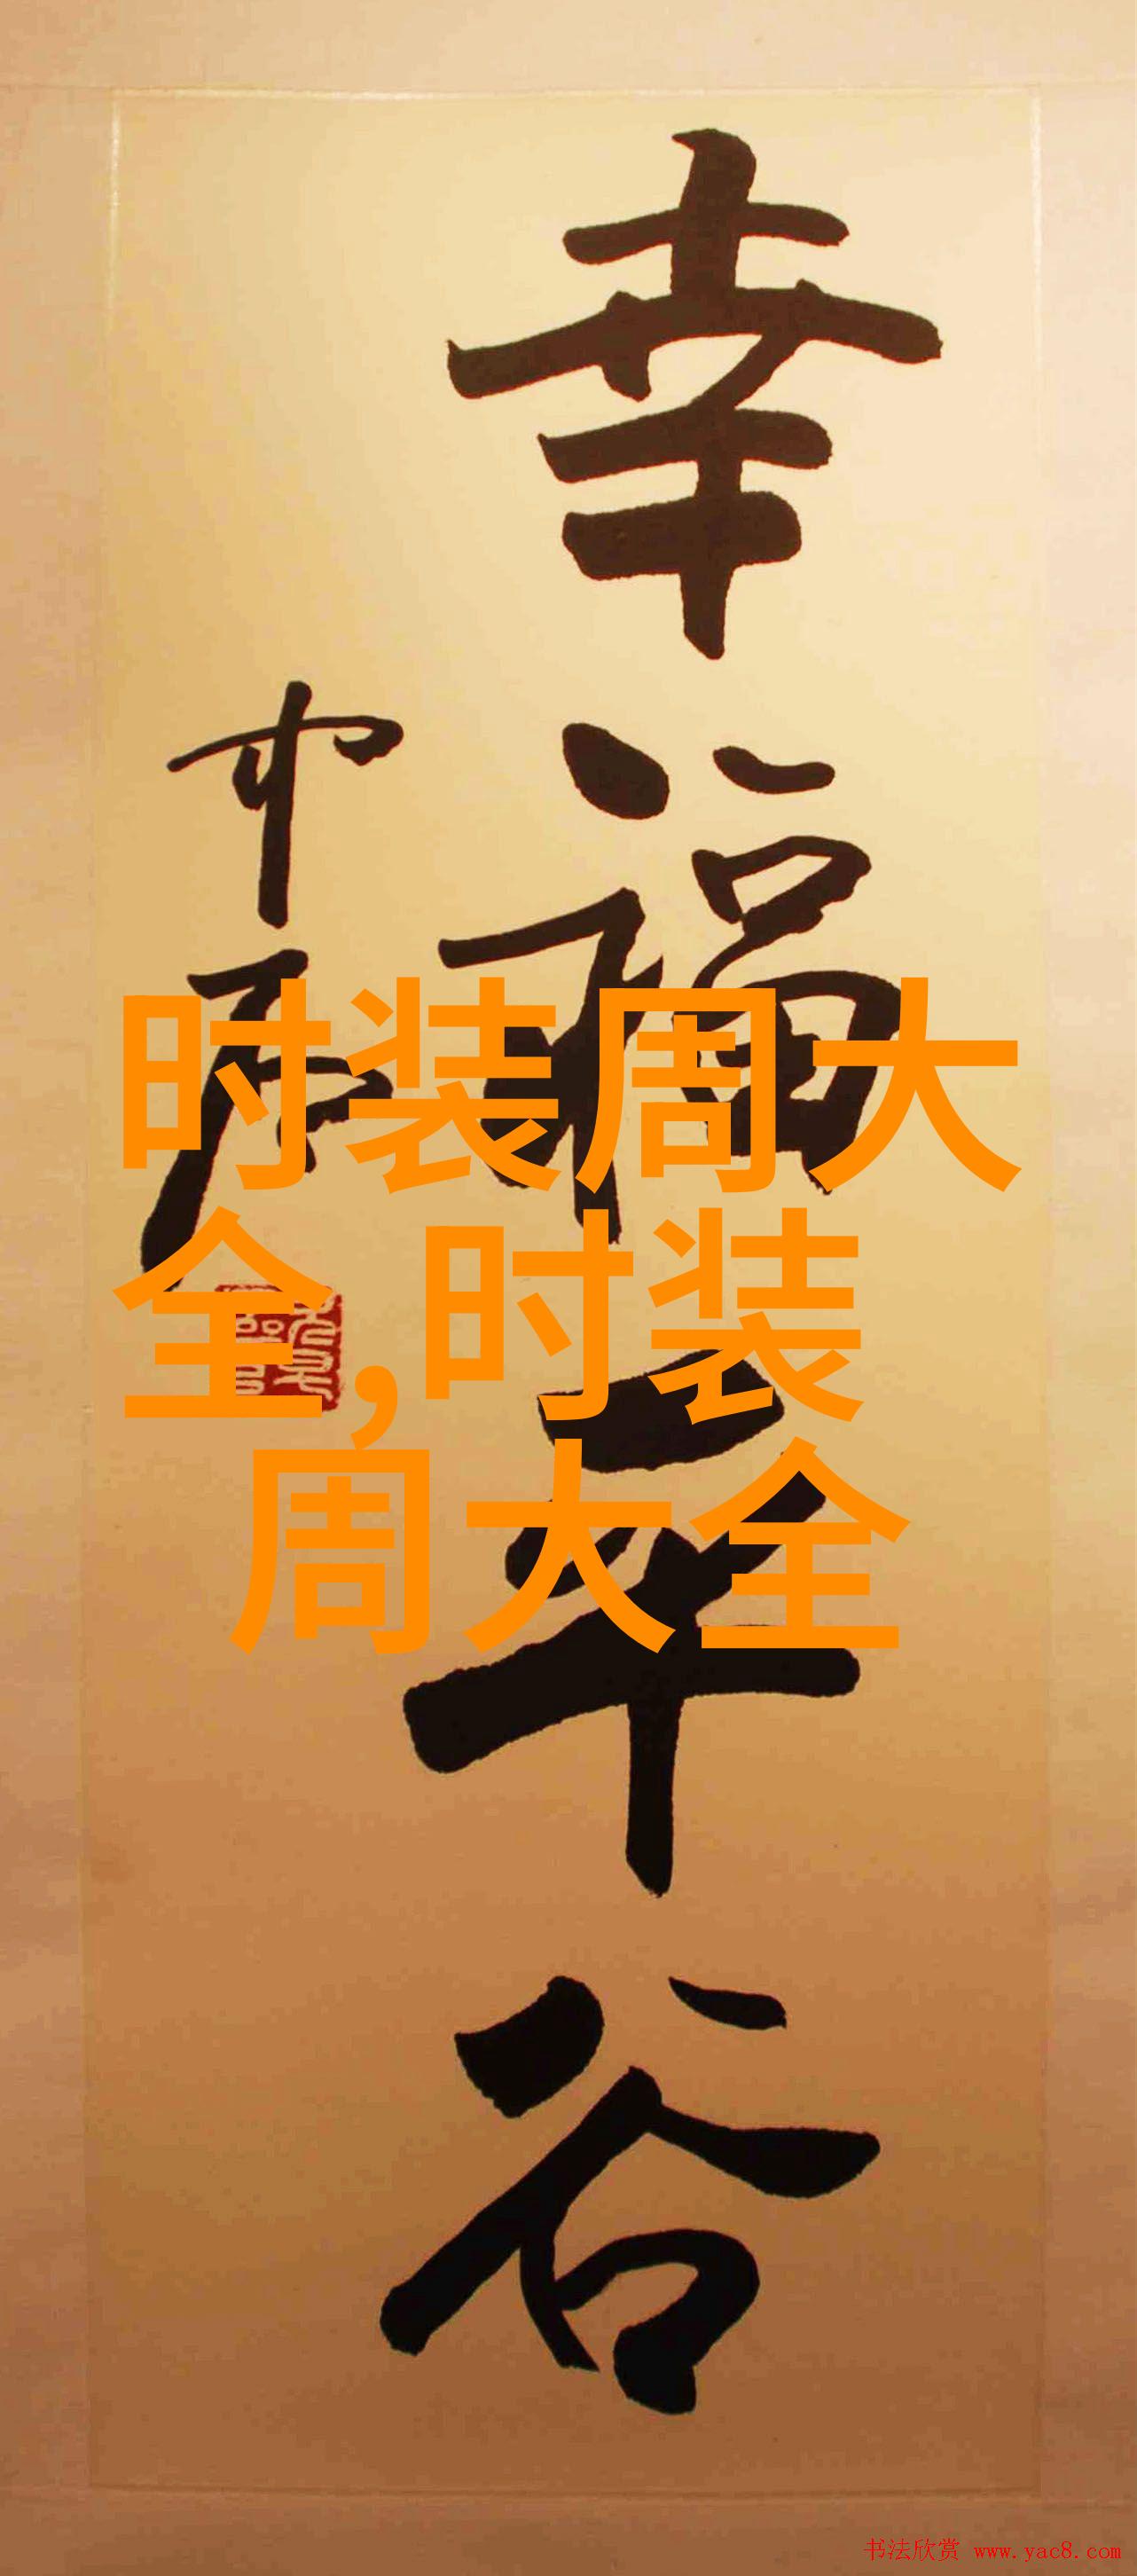 幸福平谷
中石
时装周大
全,时装
周大全
书法欣赏 www.yac8.com